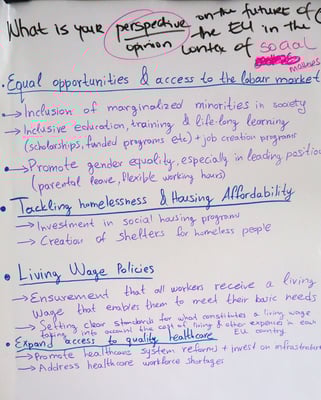 What is your perspective on the future of
opinion the EU in the
context of social
matters
• Equal opportunities & access to the labour market
→ Inclusion of marginalized minorities in society
→ Inclusive education, training & life-long learning
(scholarships, funded programs etc) + job creation programs
→ Promote gender equality, especially in leading position
(parental leave, flexible working hours)
• Tackling homelessness & Housing Affordability
→ Investment in social housing programs
→ Creation of shelters for homeless people
• Living Wage Policies
→ Ensurement that all workers receive a living
wage that enables them to meet their basic needs
→ Setting clear standards for what constitutes a living wage
taking into account the cost of living & other expenses in each
EU country
• Expand access to quality healthcare
→ Promote healthcare system reforms + invest on infrastructure
→ Address healthcare workforce shortages